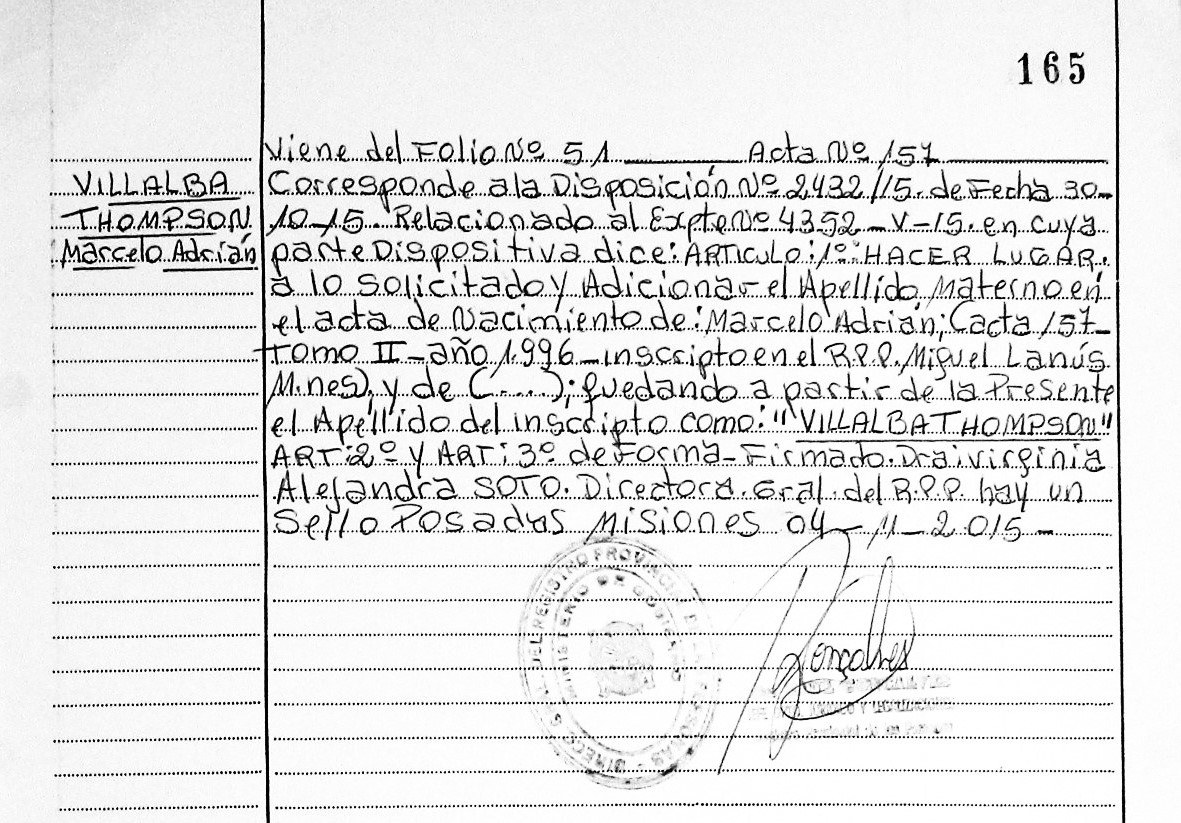 165
Viene del Folio Nº 51 Acta Nº 157
VILLALBA
THOMPSON
Marcelo Adrián
Corresponde a la Disposición Nº 2432/15. de Fecha 30-
10-15. Relacionado al Expte Nº 4352-V-15. en cuya
parte Dispositiva dice: ARTICULO: 1º HACER LUGAR.
a lo solicitado y Adicionar el Apellido Materno en
el acta de Nacimiento de: Marcelo Adrián; (acta 157-
tomo II - año 1.996 - inscripto en el R.P.P. Miguel Lanús
M.nes), y de (.....); quedando a partir de la Presente
el Apellido del inscripto como: "VILLALBA THOMPSON"
ART: 2º y ART: 3º de Forma - Firmado. Dra: virginia
Alejandra SOTO. Directora. Gral. del R.P.P. hay un
Sello Posadas Misiones 04-11-2015-
DEL REGISTRO PROVINCIAL DE LAS
MINISTERIO DE GOBIERNO
Gonçalves